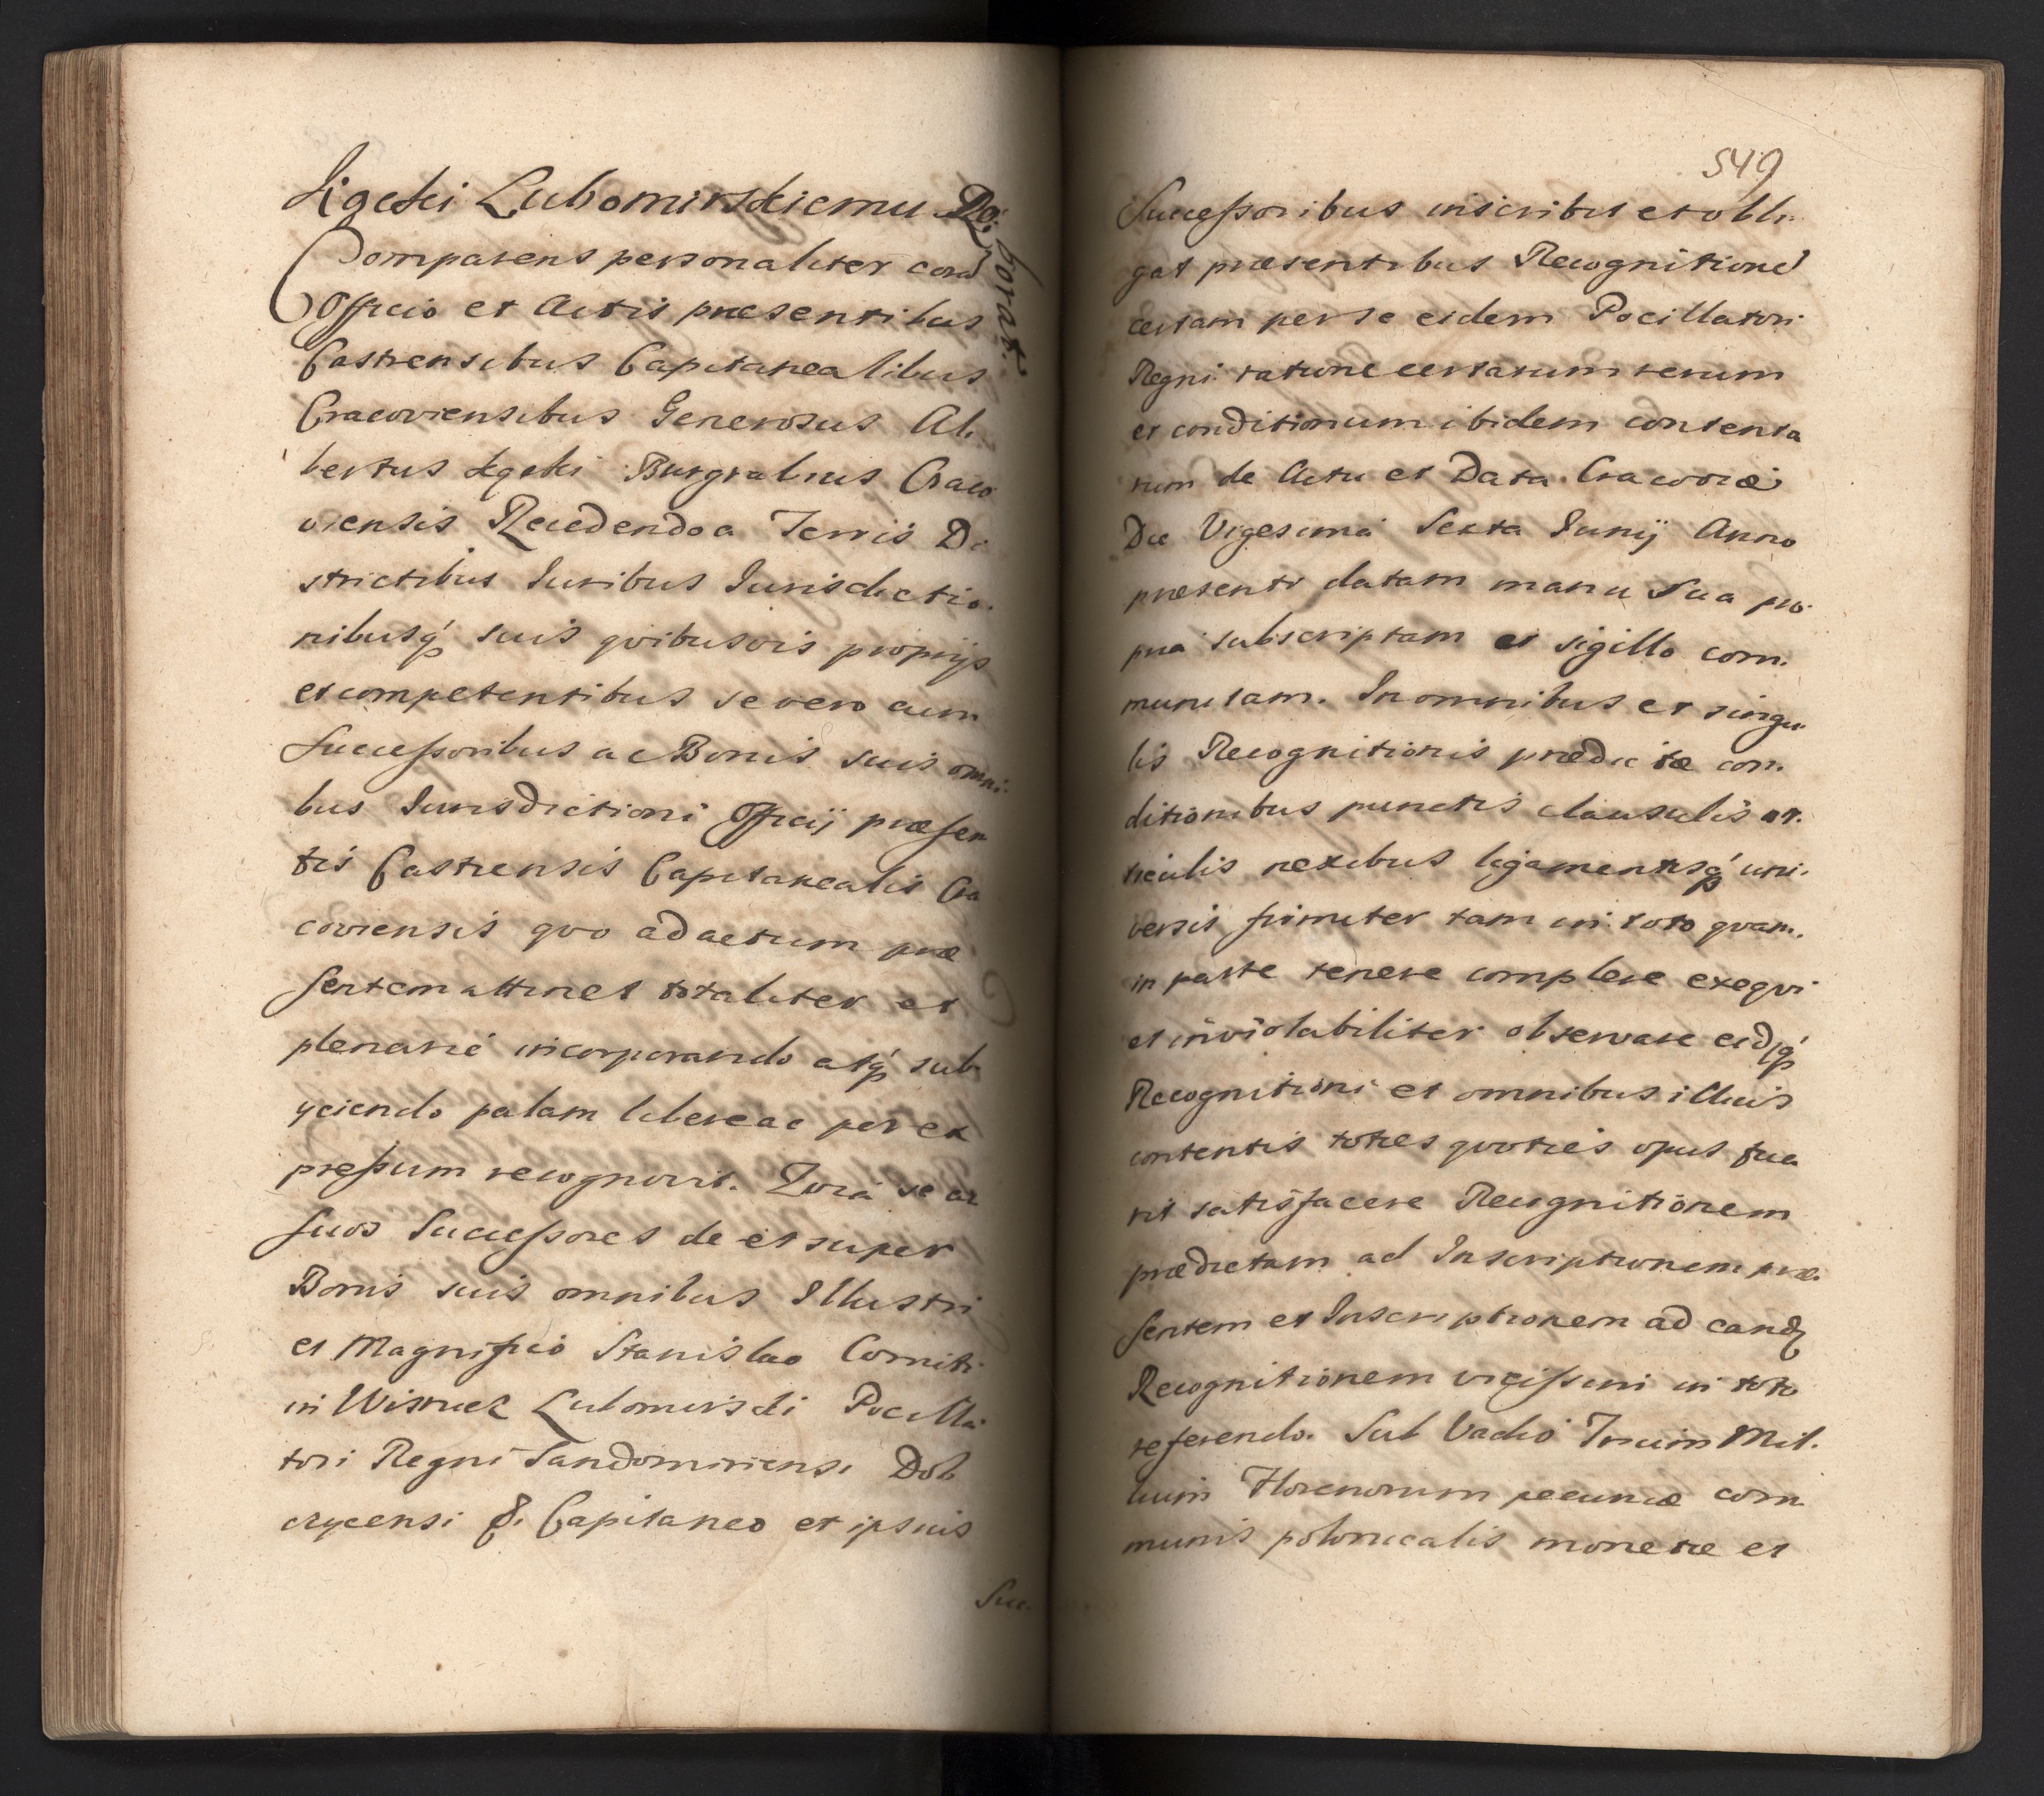 Łgoki Lubomirskiemu Ro:
borat.
Comparens personaliter corā
Officio et Actis præsentibus
Castrensibus Capitanealibus
Cracoviensibus Generosus Al.
bertus Łgoki Burgrabius Craco
viensis Recedendo a Terris Di
strictibus Iuribus Iurisdictio.
nibusq́ suis qvibusvis proprijs
et competentibus se vero cum
Successoribus ac Bonis suis omni.
bus Iurisdictioni Officij præsen
tis Castrensis Capitanealis Cra
coviensis qvo ad actum præ
sentem attinet totaliter et
plenarié incorporando atq́ sub
yciendo palam libere ac per ex
pressum recognovit. Qvia se ac
suos Successores de et super
Bonis suis omnibus Illustri
et Magnifico Stanislao Comiti
in Wisnicz Lubomirski Pocilla
tori Regni Sandomiriensi Dob
czycensi &. Capitaneo et ipsius
Suc.
549
Successoribus inscribit et obli
gat præsentibus Recognitionē
certam per se eidem Pocillatori
Regni ratione certarum rerum
et conditionum ibidem contenta
rum de Actu et Data Cracoviæ
Die Vigesima Sexta Iunij Anno
præsenti datam manu sua pro.
pria subscriptam et sigillo com.
munitam. In omnibus et singu.
lis Recognitionis prædictæ con.
ditionibus punctis clausulis ar.
ticulis nexibus ligamentisq́ uni.
versis firmiter tam in toto qvam.
in parte tenere complere exeqvi
et inviolabiliter observare eidq́
Recognitioni et omnibus illius
contentis toties qvoties opus fue
rit satisfacere Recognitionem
prædictam ad Inscriptionem præ.
sentem et Inscriptionem ad eandē
Recognitionem vicissim in toto
referendo. Sub Vadio Trium Mil.
lium Florenorum pecuniæ com
munis polonicalis monetæ et